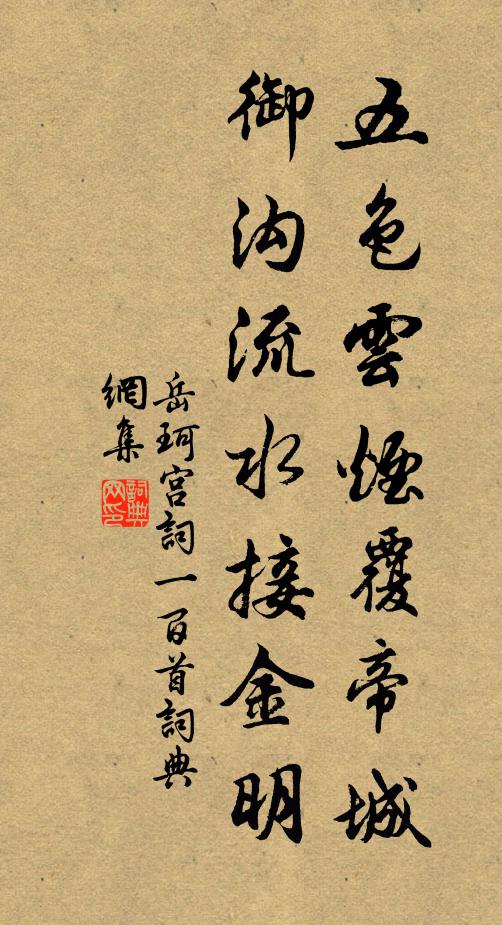 五色雲煙覆帝城
御沟流水接金明
岳珂宫詞一百首詞典
網集
詞典
网印